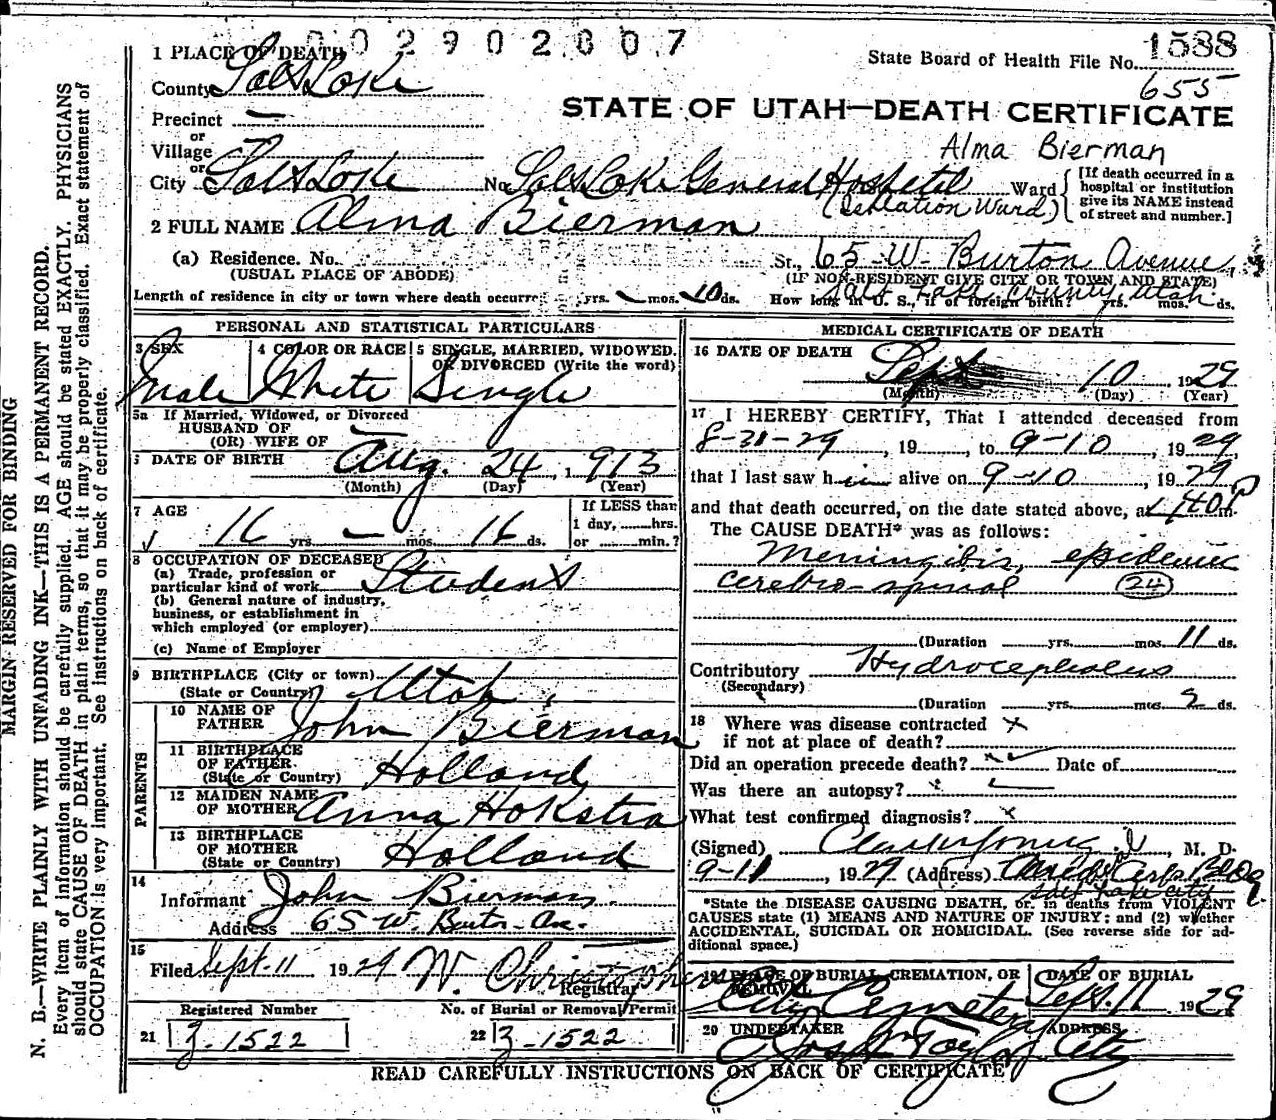 002902607
1588
State Board of Health File No.
655
1 PLACE OF DEATH
County Salt Lake
STATE OF UTAH—DEATH CERTIFICATE
Precinct —
or
Village
Alma Bierman
or
City Salt Lake No. Salt Lake General Hospital Ward
(Isolation Ward)
[If death occurred in a
hospital or institution
give its NAME instead
of street and number.]
2 FULL NAME Alma Bierman
(a) Residence. No. St., 65 W. Burton Avenue,
(USUAL PLACE OF ABODE)
(IF NON-RESIDENT GIVE CITY OR TOWN AND STATE)
County, Utah
Length of residence in city or town where death occurred yrs. mos. 10 ds. How long in U. S., if of foreign birth? yrs. mos. ds.
PERSONAL AND STATISTICAL PARTICULARS
3 SEX
Male
4 COLOR OR RACE
White
5 SINGLE, MARRIED, WIDOWED,
OR DIVORCED (Write the word)
Single
5a If Married, Widowed, or Divorced
HUSBAND OF
(OR) WIFE OF —
DATE OF BIRTH Aug. 24, 1913
(Month) (Day) (Year)
7 AGE
16 yrs. — mos. 16 ds.
If LESS than
1 day, hrs.
or min.?
8 OCCUPATION OF DECEASED
(a) Trade, profession or
particular kind of work Student
(b) General nature of industry,
business, or establishment in
which employed (or employer)
(c) Name of Employer
9 BIRTHPLACE (City or town)
(State or Country) Utah
PARENTS
10 NAME OF
FATHER John Bierman
11 BIRTHPLACE
OF FATHER
(State or Country) Holland
12 MAIDEN NAME
OF MOTHER Anna Hokstra
13 BIRTHPLACE
OF MOTHER
(State or Country) Holland
14
Informant John Bierman
Address 65 W. Burton Ave.
15
Filed Sept-11 1929
Registrar
Registered Number
21 3-1522
No. of Burial or Removal Permit
22 3-1522
MEDICAL CERTIFICATE OF DEATH
16 DATE OF DEATH
Sept 10, 1929
(Month) (Day) (Year)
17 I HEREBY CERTIFY, That I attended deceased from
8-31-29, 19 , to 9-10, 1929,
that I last saw him alive on 9-10, 1929
and that death occurred, on the date stated above, at 1:40P m.
The CAUSE DEATH* was as follows:
Meningitis, epidemic
cerebro-spinal (24)
(Duration yrs. mos. 11 ds.
Contributory Hydrocephalus
(Secondary)
(Duration yrs. mos. 2 ds.
18 Where was disease contracted x
if not at place of death?
Did an operation precede death? Date of
Was there an autopsy?
What test confirmed diagnosis? x
(Signed) , M. D.
9-11, 1929 (Address) Bldg
Salt Lake City
*State the DISEASE CAUSING DEATH, or, in deaths from VIOLENT
CAUSES state (1) MEANS AND NATURE OF INJURY; and (2) whether
ACCIDENTAL, SUICIDAL OR HOMICIDAL. (See reverse side for ad-
ditional space.)
19 PLACE OF BURIAL, CREMATION, OR
REMOVAL
City Cemetery
DATE OF BURIAL
Sept. 11 1929
20 UNDERTAKER
Taylor
ADDRESS
City
READ CAREFULLY INSTRUCTIONS ON BACK OF CERTIFICATE
MARGIN RESERVED FOR BINDING
N. B.—WRITE PLAINLY WITH UNFADING INK—THIS IS A PERMANENT RECORD.
Every item of information should be carefully supplied. AGE should be stated EXACTLY. PHYSICIANS
should state CAUSE OF DEATH in plain terms, so that it may be properly classified. Exact statement of
OCCUPATION is very important. See instructions on back of certificate.